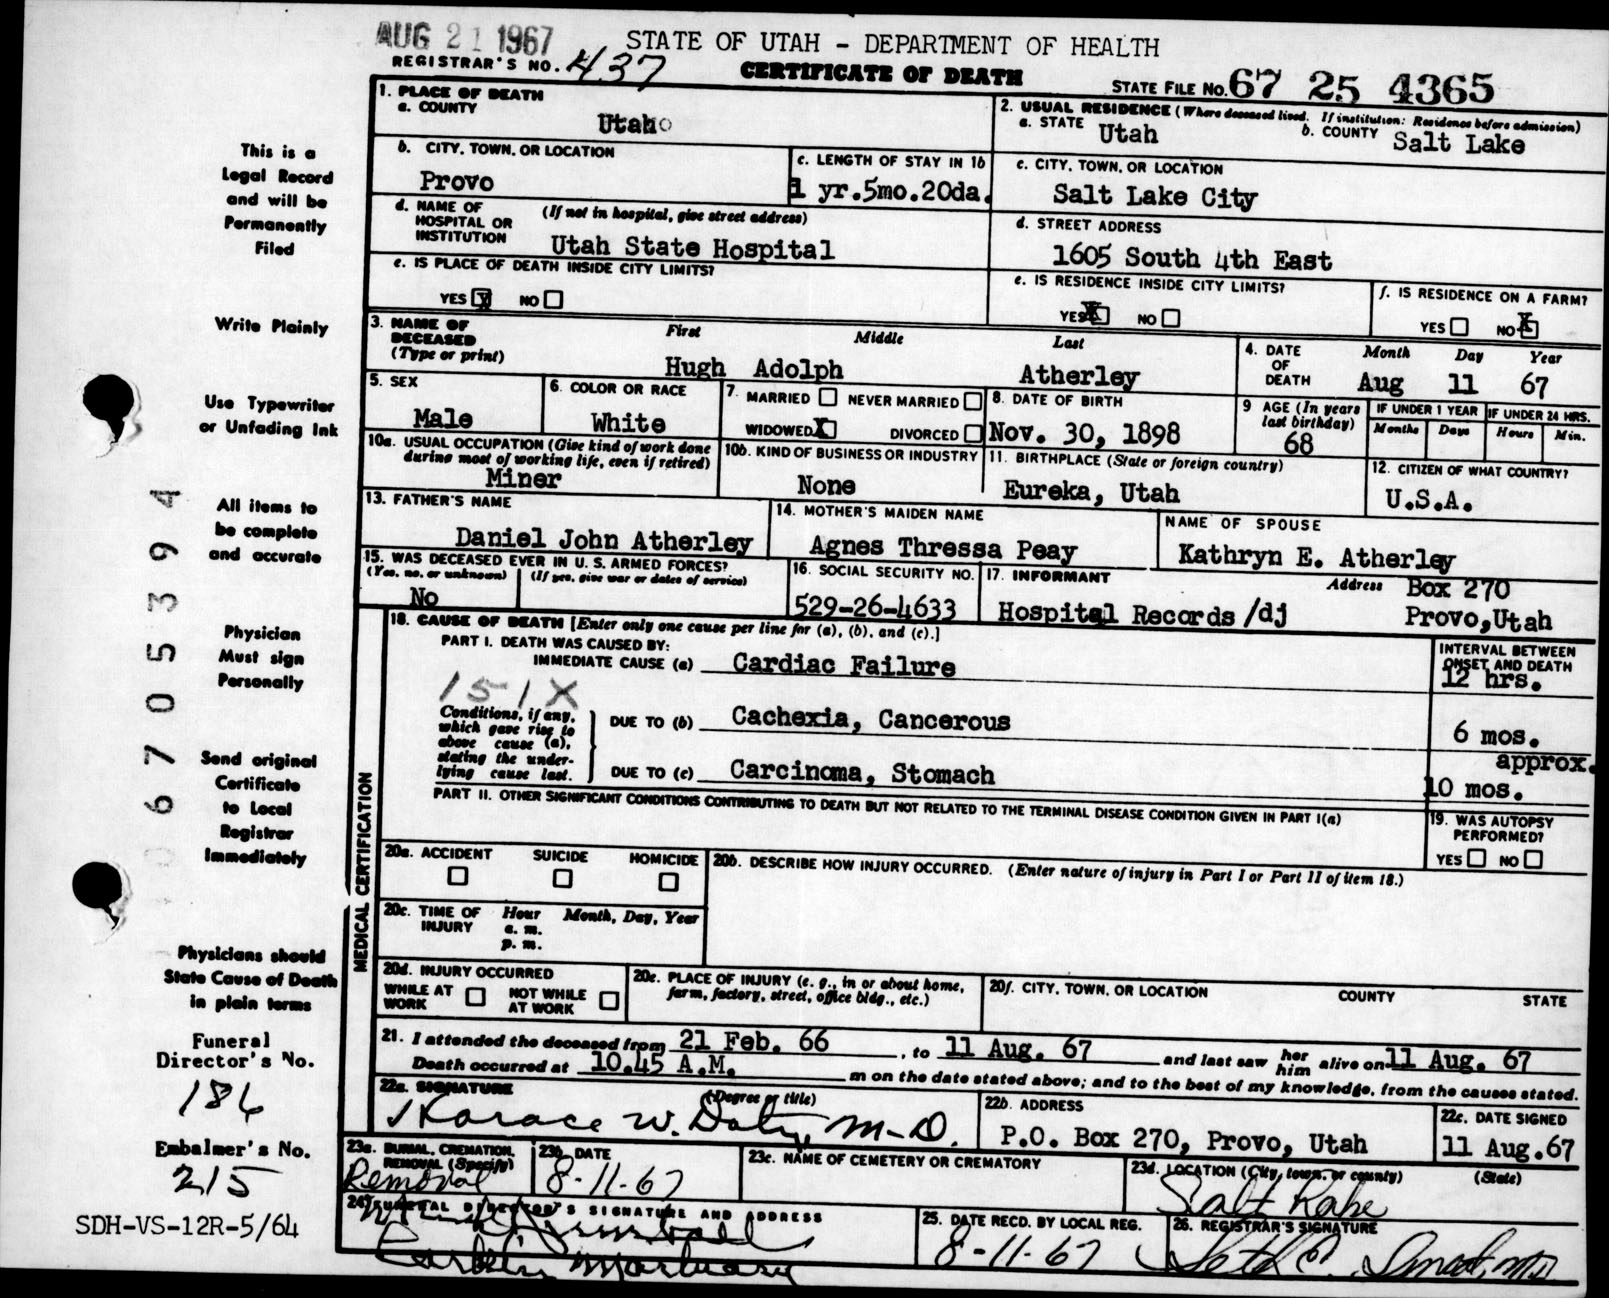 AUG 21 1967
STATE OF UTAH - DEPARTMENT OF HEALTH
REGISTRAR'S NO. 437
CERTIFICATE OF DEATH
STATE FILE NO. 67 25 4365
This is a
Legal Record
and will be
Permanently
Filed
Write Plainly
Use Typewriter
or Unfading Ink
All items to
be complete
and accurate
Physician
Must sign
Personally
Send original
Certificate
to Local
Registrar
Immediately
Physicians should
State Cause of Death
in plain terms
Funeral
Director's No.
186
Embalmer's No.
215
SDH-VS-12R-5/64
06705394
1. PLACE OF DEATH
a. COUNTY
Utah
2. USUAL RESIDENCE (Where deceased lived. If institution: Residence before admission)
a. STATE Utah b. COUNTY Salt Lake
b. CITY, TOWN, OR LOCATION
Provo
c. LENGTH OF STAY IN 1b
1 yr.5mo.20da.
c. CITY, TOWN, OR LOCATION
Salt Lake City
d. NAME OF HOSPITAL OR INSTITUTION (If not in hospital, give street address)
Utah State Hospital
d. STREET ADDRESS
1605 South 4th East
e. IS PLACE OF DEATH INSIDE CITY LIMITS?
YES X NO
e. IS RESIDENCE INSIDE CITY LIMITS?
YES X NO
f. IS RESIDENCE ON A FARM?
YES NO X
3. NAME OF DECEASED (Type or print)
First Middle Last
Hugh Adolph Atherley
4. DATE OF DEATH
Month Day Year
Aug 11 67
5. SEX
Male
6. COLOR OR RACE
White
7. MARRIED NEVER MARRIED
WIDOWED X DIVORCED
8. DATE OF BIRTH
Nov. 30, 1898
9 AGE (In years last birthday)
68
IF UNDER 1 YEAR
Months Days
IF UNDER 24 HRS.
Hours Min.
10a. USUAL OCCUPATION (Give kind of work done during most of working life, even if retired)
Miner
10b. KIND OF BUSINESS OR INDUSTRY
None
11. BIRTHPLACE (State or foreign country)
Eureka, Utah
12. CITIZEN OF WHAT COUNTRY?
U.S.A.
13. FATHER'S NAME
Daniel John Atherley
14. MOTHER'S MAIDEN NAME
Agnes Thressa Peay
NAME OF SPOUSE
Kathryn E. Atherley
15. WAS DECEASED EVER IN U. S. ARMED FORCES?
(Yes, no, or unknown) (If yes, give war or dates of service)
No
16. SOCIAL SECURITY NO.
529-26-4633
17. INFORMANT
Hospital Records /dj
Address Box 270
Provo,Utah
MEDICAL CERTIFICATION
18. CAUSE OF DEATH [Enter only one cause per line for (a), (b), and (c).]
PART I. DEATH WAS CAUSED BY:
IMMEDIATE CAUSE (a) Cardiac Failure
INTERVAL BETWEEN ONSET AND DEATH
12 hrs.
151X
Conditions, if any, which gave rise to above cause (a), stating the underlying cause last.
DUE TO (b) Cachexia, Cancerous
6 mos.
DUE TO (c) Carcinoma, Stomach
approx.
10 mos.
PART II. OTHER SIGNIFICANT CONDITIONS CONTRIBUTING TO DEATH BUT NOT RELATED TO THE TERMINAL DISEASE CONDITION GIVEN IN PART I(a)
19. WAS AUTOPSY PERFORMED?
YES NO
20a. ACCIDENT SUICIDE HOMICIDE
20b. DESCRIBE HOW INJURY OCCURRED. (Enter nature of injury in Part I or Part II of item 18.)
20c. TIME OF INJURY
Hour Month, Day, Year
a. m.
p. m.
20d. INJURY OCCURRED
WHILE AT WORK NOT WHILE AT WORK
20e. PLACE OF INJURY (e. g., in or about home, farm, factory, street, office bldg., etc.)
20f. CITY, TOWN, OR LOCATION COUNTY STATE
21. I attended the deceased from 21 Feb. 66, to 11 Aug. 67 and last saw her him alive on 11 Aug. 67
Death occurred at 10.45 A.M. m on the date stated above; and to the best of my knowledge, from the causes stated.
22a. SIGNATURE (Degree or title)
Horace W. Doty, M.D.
22b. ADDRESS
P.O. Box 270, Provo, Utah
22c. DATE SIGNED
11 Aug.67
23a. BURIAL, CREMATION, REMOVAL (Specify)
Removal
23b DATE
8-11-67
23c. NAME OF CEMETERY OR CREMATORY
23d. LOCATION (City, town, or county) (State)
Salt Lake
24. FUNERAL DIRECTOR'S SIGNATURE AND ADDRESS
Mortuary
25. DATE RECD. BY LOCAL REG.
8-11-67
26. REGISTRAR'S SIGNATURE